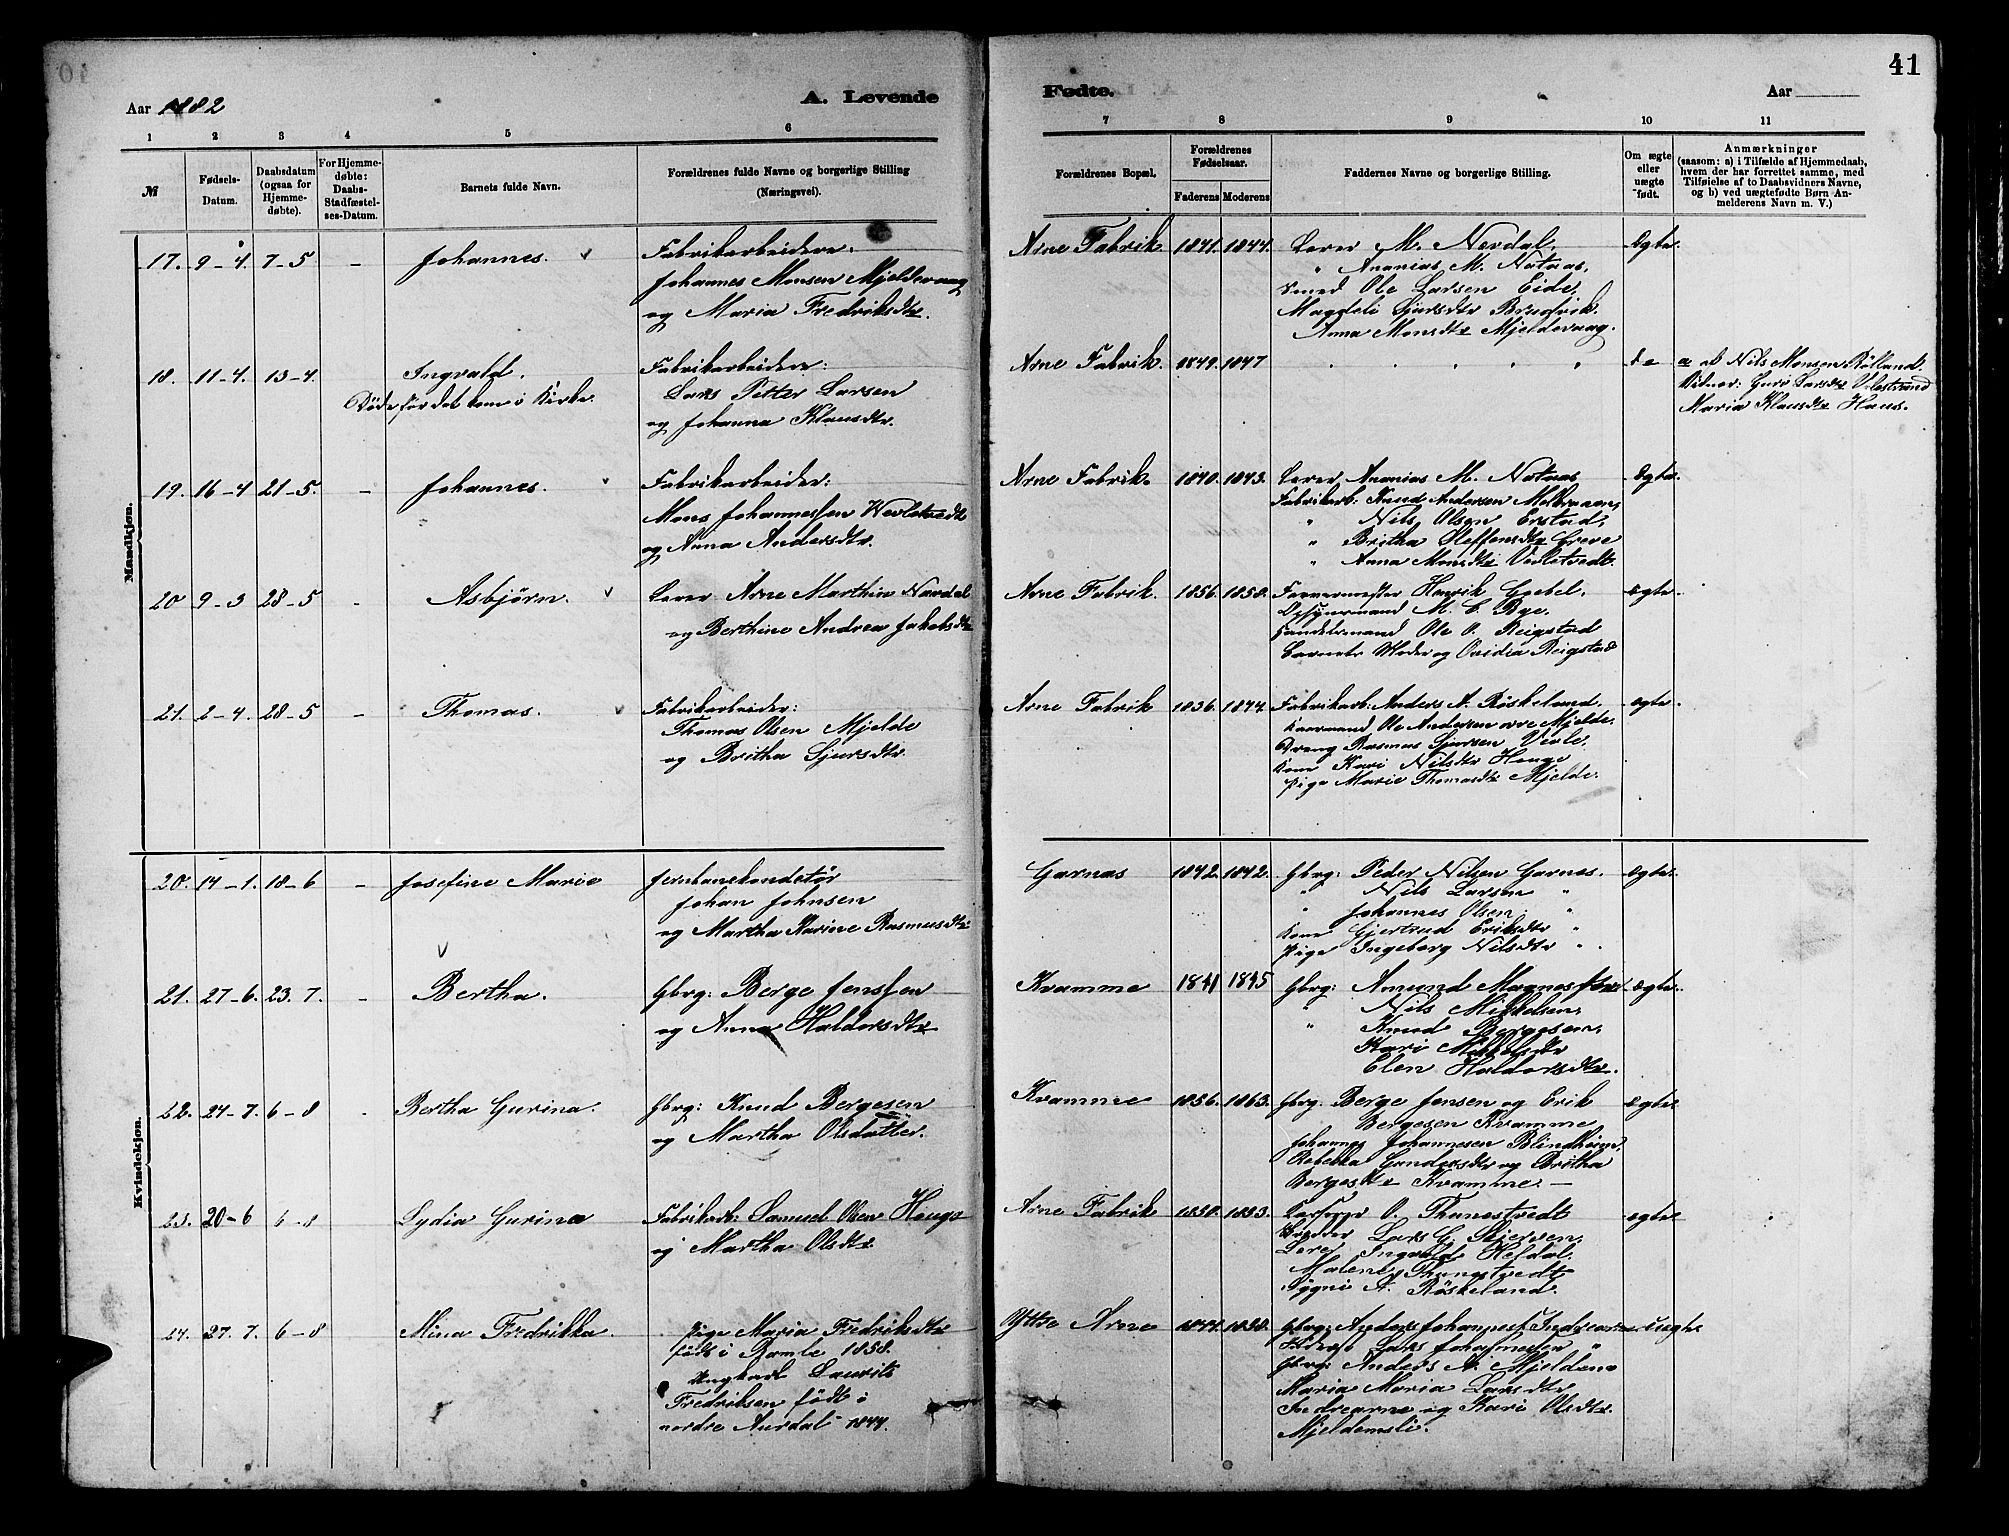 41
Aar 1882
A. Levende
Fødte.
Aar
1 2 3 4 5 6
7 8 9 10 11
№
Fødsels-
Datum.
Daabsdatum
(ogsaa for
Hjemme-
døbte).
For Hjemme-
døbte:
Daabs-
Stadfæstel-
ses-Datum.
Barnets fulde Navn.
Forældrenes fulde Navne og borgerlige Stilling
(Næringsvei).
Forældrenes Bopæl.
Forældrenes
Fødselsaar.
Faderens Moderens
Faddernes Navne og borgerlige Stilling.
Om ægte
eller
uægte
født.
Anmærkninger
(saasom: a) i Tilfælde af Hjemmedaab,
hvem der har forrettet samme, med
Tilføielse af to Daabsvidners Navne,
og b) ved uægtefødte Børn An-
melderens Navn m. V.)
Mandkjøn.
17. 9-4. 7-5 - Johannes.
Fabrikarbeider:
Johannes Monsen Mjeldevaag
og Maria Fredriksdtr.
Arne Fabrik 1841. 1844.
Lærer M. Nevdal,
" Ananias M. Nataas,
Smed Ole Larsen Eide,
Magdeli Sjursdtr Brudvik.
Anna Monsdtr Mjeldevaag.
Ægte.
18. 11-4. 13-4. Ingvald.
Døde før det kom i Kirke.
Fabrikarbeider:
Lars Petter Larsen
og Johanna Klausdtr.
Arne Fabrik. 1849. 1847
de
a. af Nils Monsen Rölland.
Vidner: Guro Larsdtr
Maria Klausdtr Haus.
19. 16-4 21-5. - Johannes.
Fabrikarbeider:
Mons Johannessen
og Anna Andersdtr.
Arne Fabrik. 1840. 1843.
Lærer Ananias M. Nataas
Fabrikarb: Knud Andersen
" Nils Olsen Erstad,
" Britha Steffensdtr Greve
" Anna Monsdtr
Ægte.
20 9-3 28-5 - Asbjørn.
Lærer Arne Marthin Navdal
og Berthine Andrea Jakobsdtr
Arne Fabrik. 1856. 1850.
Farvermester Henrik Goebel.
M. C. Bye.
Handelsmand Ole O. Reigstad
Barnets Moder og Ovidia Reigstad
Ægte.
21. 2-4. 28-5 - Thomas.
Fabrikarbeider:
Thomas Olsen Mjelde
og Britha Sjursdtr.
Arne Fabrik 1836. 1844.
Fabrikarb: Anders A. Röskeland.
Kaarmand Ole Andersen øvre Mjelde.
Dreng Rasmus Sjursen
Kone Kari Nilsdtr Hauge
Pige Marie Thomasdtr Mjelde.
ægte.
Kvindekjøn.
20. 14-1. 18-6 - Josefine Marie
Jernbanekondetør
Johan Johnsen
og Martha Karine Rasmusdtr
Garnas 1842. 1842.
Gbrg: Peder Nilsen Garnes.
" Nils Larsen "
" Johannes Olsen "
Kone Gjertrud Eriksdtr "
Pige Ingeborg Nilsdtr "
ægte.
21. 27-6. 23.7. - Bertha.
Gbrg: Berge Jenssen
og Anna Haldorsdtr
Kvamme 1841 1845
Gbrg: Amund Magnessen
" Nils Mikkelsen,
" Knud Bergesen,
Kari
Elen Haldorsdtr.
ægte.
22. 24-7. 6-8 - Bertha Gurina.
Gbrg: Knud Bergesen
og Martha Olsdatter.
Kvamme 1856. 1863.
Gbrg. Berge Jensen og Erik
Bergesen Kvamme
Johannes Johannesen Blindheim,
Rebekka Gundersdtr og Britha
Bergesdtr Kvamme. -
Ægte.
23. 20-6 6-8 Lydia Gurina
Fabrikarb: Samuel Olsen Hauge
og Martha Olsdtr
Arne Fabrik 1850. 1853.
O. Thunestvedt
Lars G. Skjersen,
Lærer Ingvald Heldal.
Malene Thunestvedt
A. Röskeland.
ægte
24. 27.7. 6-8 Mina Fredrikka.
Pige Maria Fredriksdtr
født i Bamle 1858.
Ungkarl Laurits
Fredriksen født i
nordre Aurdal 1844.
Yttre Arne 1844. 1858.
Gbrg: Anders Johannes. Indrearne
Lars Johannesen "
Gbrg: Anders A. Mjeldem
Maria Maria Larsdtr
Indrearne og Kari Olsdtr.
Mjeldemsli.
uægte